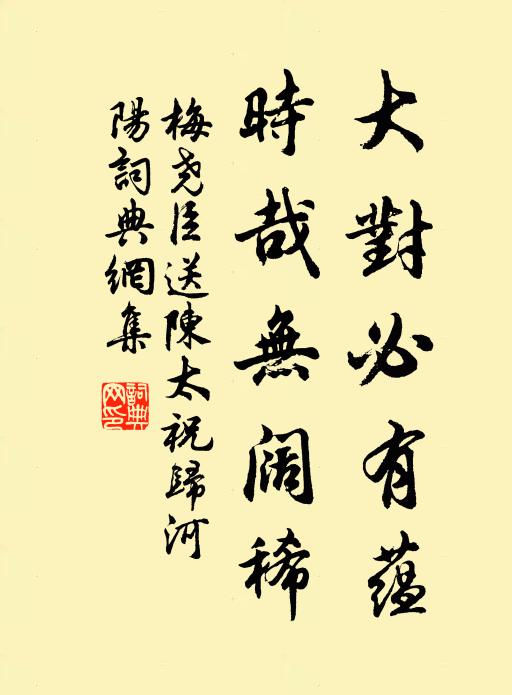 大對必有蕴
時哉無阔稀
梅尧臣送陳太祝歸河
陽詞典網集
詞典
网印